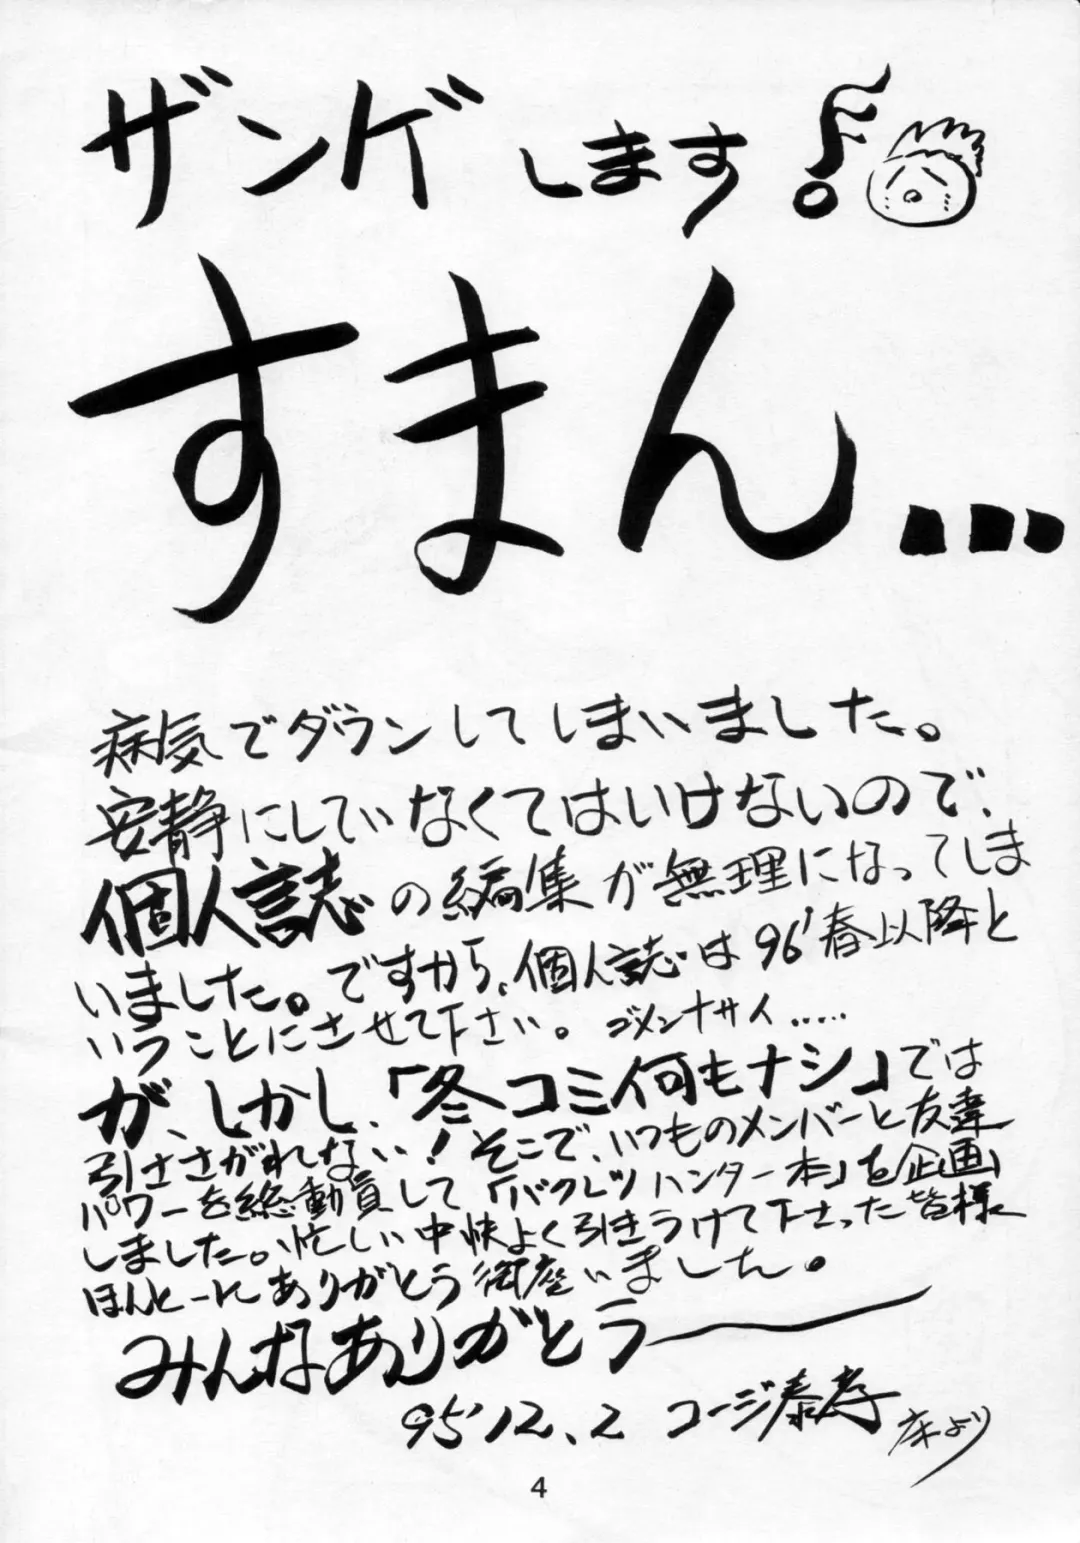 ザンゲします
すまん...
病気でダウンしてしまいました。
安静にしていなくてはいけないので、
個人誌の編集が無理になってしま
いました。ですから、個人誌は96'春以降と
いうことにさせて下さい。ゴメンナサイ.....
が、しかし、「冬コミ何もナシ」では
引きさがれない!そこで、いつものメンバーと友達
パワーを総動員して「バクレツハンター本」を企画
しました。忙しい中快よく引きうけて下さった皆様
ほんとーにありがとう御座いました。
みんなありがとうー
95'12.2 コージ泰孝 床より
4